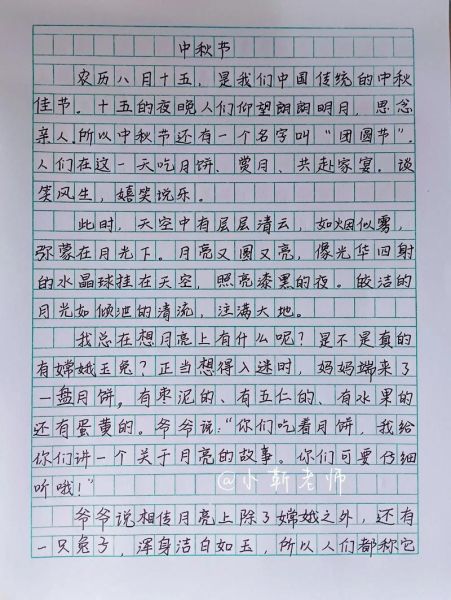 中秋节
农历八月十五，是我们中国传统的中秋
佳节。十五的夜晚人们仰望朗朗明月，思念
亲人.所以中秋节还有一个名字叫“团圆节”.
人们在这一天吃月饼、赏月、共赴家宴。谈
笑风生，嬉笑玩乐。
此时，天空中有层层清云，如烟似雾，
弥蒙在月光下。月亮又圆又亮，像光华四射
的水晶球挂在天空，照亮漆黑的夜。皎洁的
月光如倾泄的清流，注满大地。
我总在想月亮上有什么呢？是不是真的
有嫦娥玉兔？正当想得入迷时，妈妈端来了
一盘月饼，有枣泥的、有五仁的、有水果的
还有蛋黄的。爷爷说：“你们吃着月饼，我给
你们讲一个关于月亮的故事。你们可要仔细
听哦！”
@小靳老师
爷爷说相传月亮上除了嫦娥之外，还有
一只兔子，浑身洁白如玉，所以人们都称它